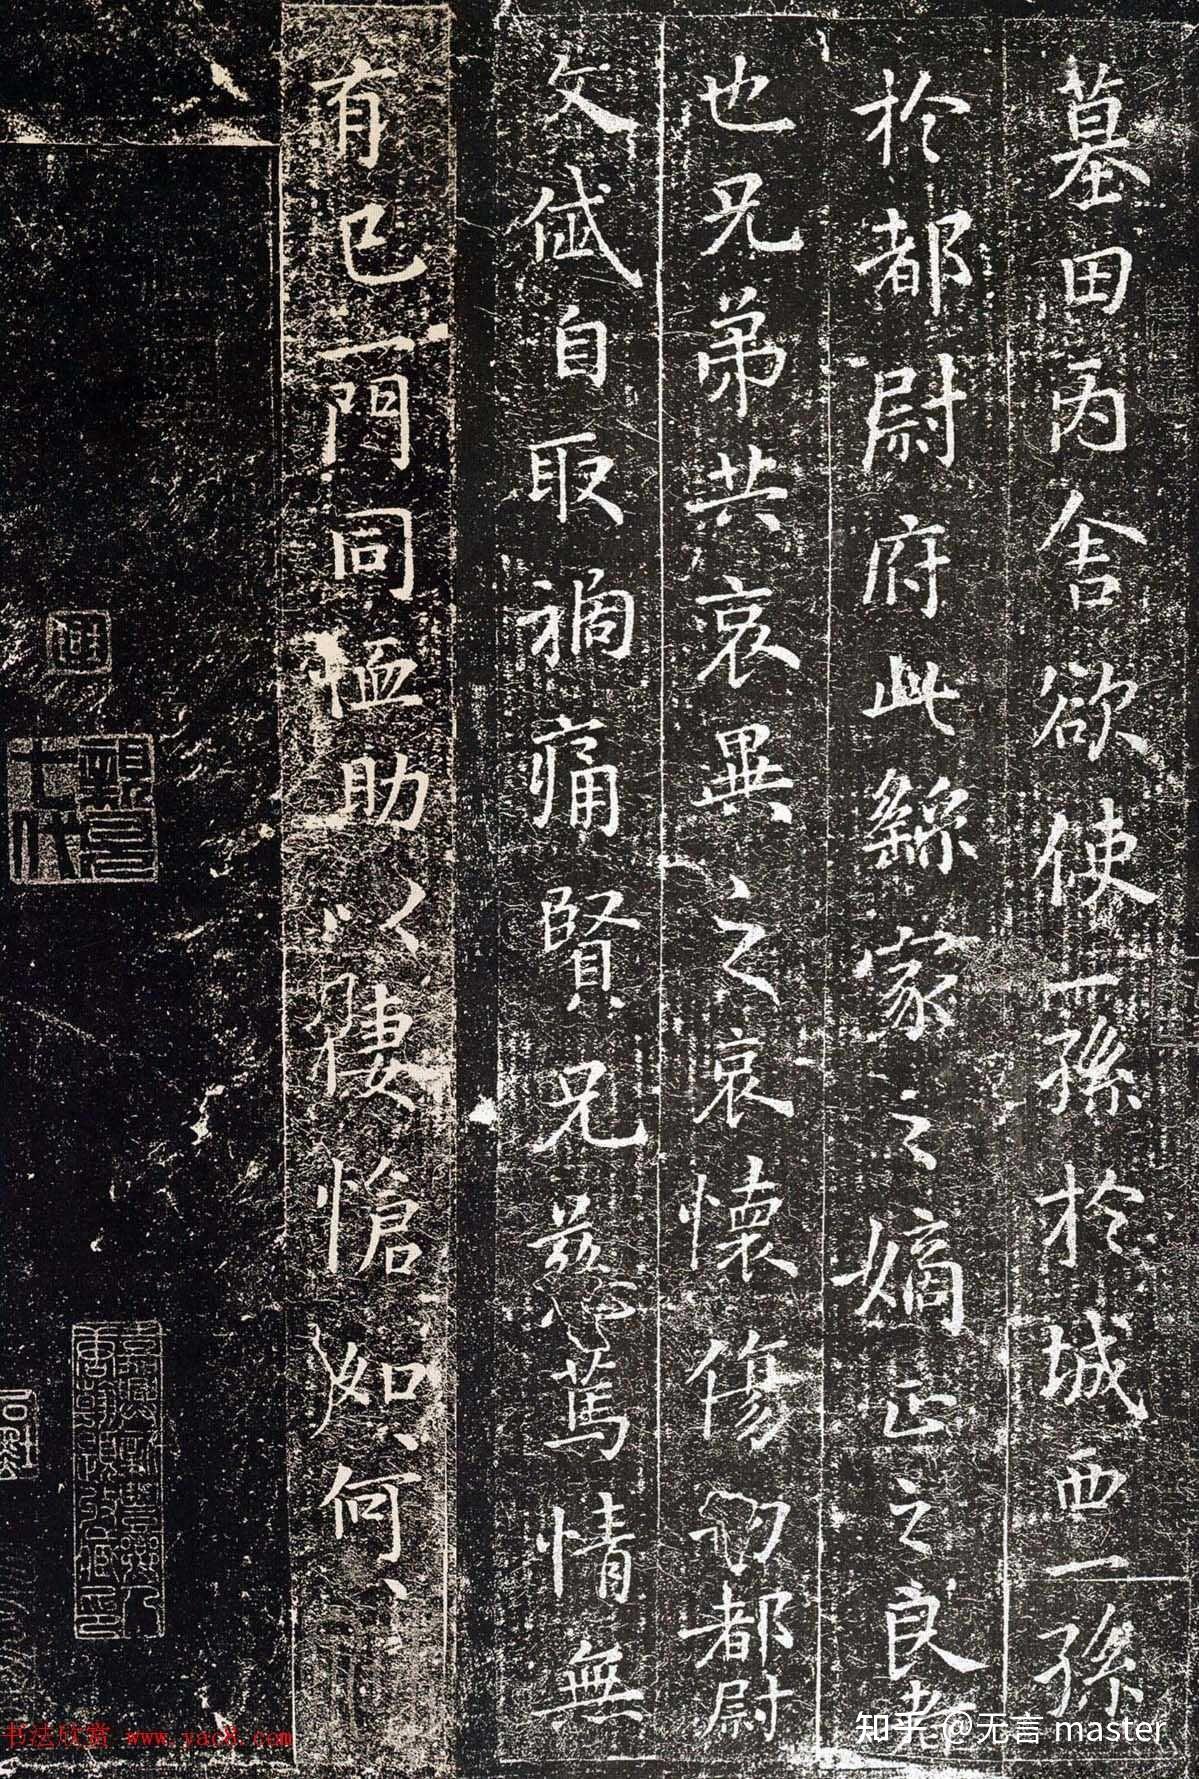 墓田丙舍欲使一孫於城西一孫
於都尉府此繇家之嫡正之良者
也兄弟共哀異之哀懷傷切都尉
文岱自取禍痛賢兄慈篤情無
有已一門同恤助以悽愴如何
書法欣赏 www.yac8.com
知乎 @无言 master